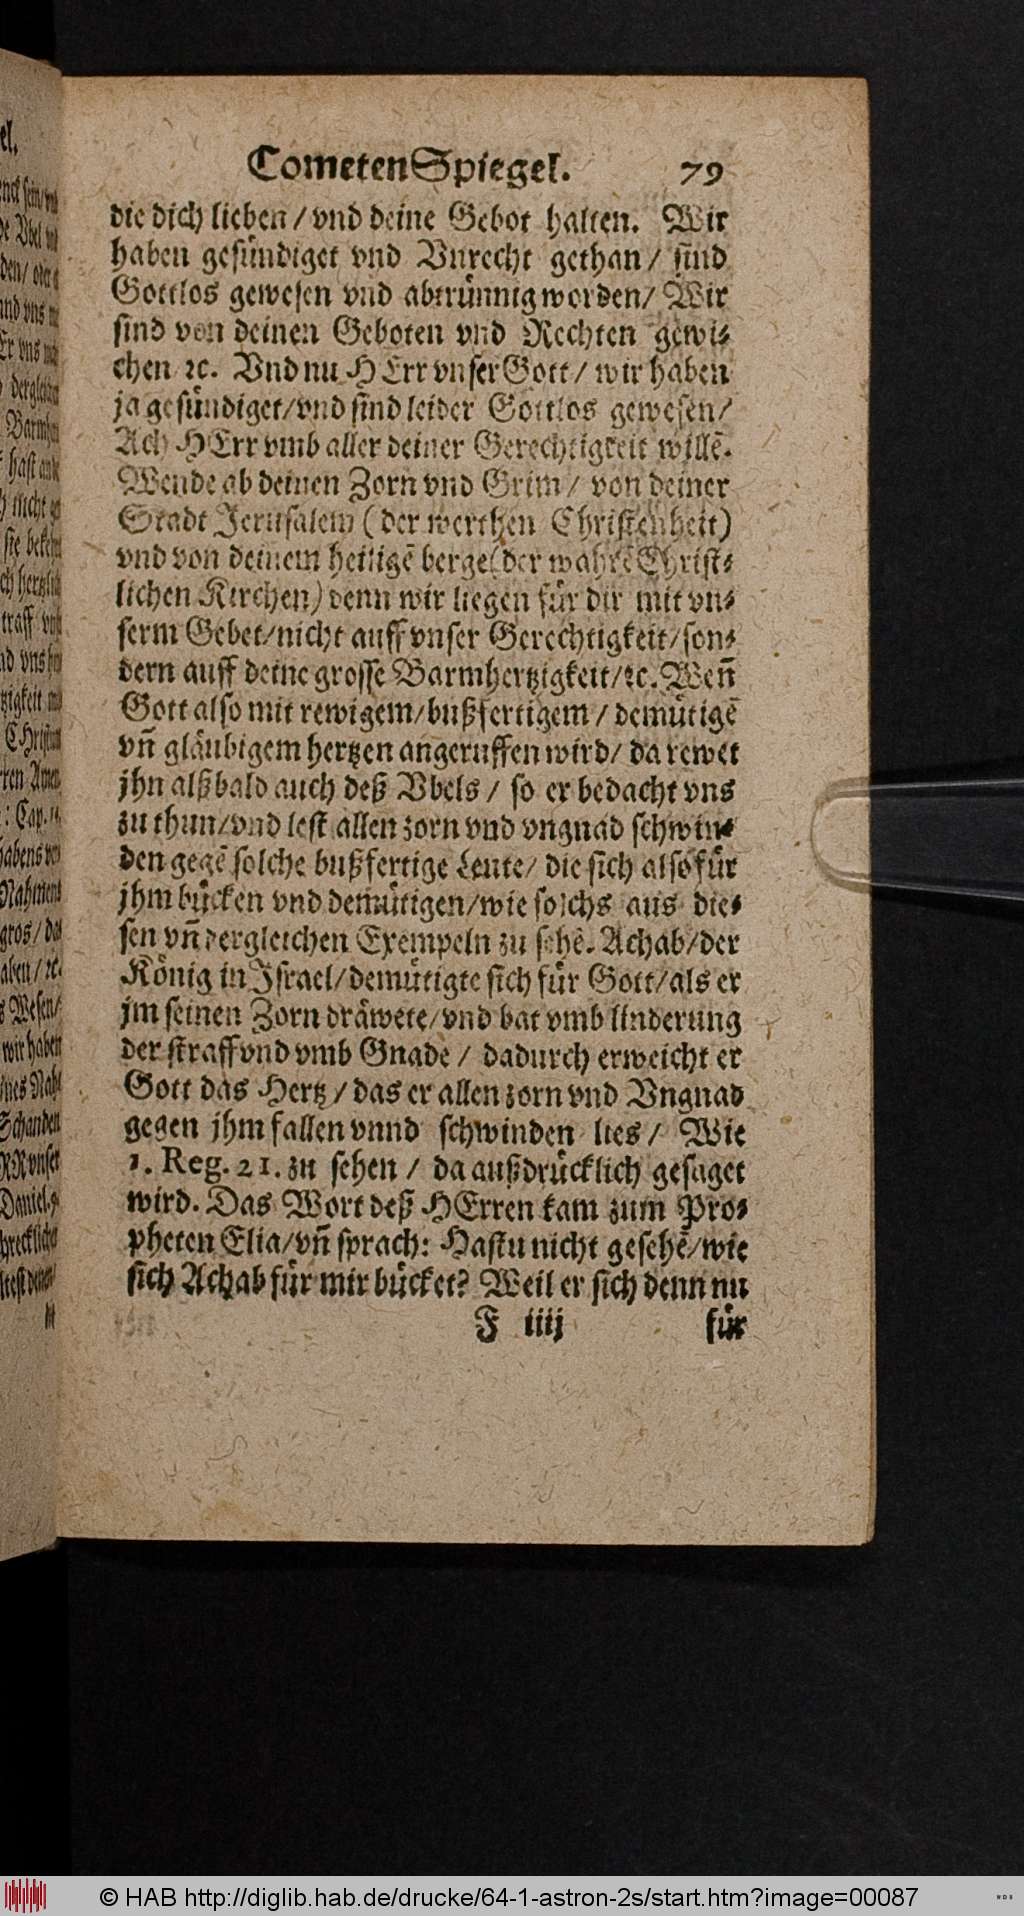 CometenSpiegel. 79
die dich lieben / vnd deine Gebot halten. Wir
haben gesündiget vnd Vnrecht gethan / sind
Gottlos gewesen vnd abtrünnig worden / Wir
sind von deinen Geboten vnd Rechten gewi-
chen ꝛc. Vnd nu HErr vnser Gott / wir haben
ja gesündiget / vnd sind leider Gottlos gewesen /
Ach HErr vmb aller deiner Gerechtigkeit willẽ.
Wende ab deinen Zorn vnd Grim / von deiner
Stadt Jerusalem (der werthen Christenheit)
vnd von deinem heiligẽ berge (der wahrẽ Christ-
lichen Kirchen) denn wir liegen für dir mit vn-
serm Gebet / nicht auff vnser Gerechtigkeit / son-
dern auff deine grosse Barmhertzigkeit / ꝛc. Weñ
Gott also mit rewigem / bußfertigem / demütigẽ
vñ gläubigem hertzen angeruffen wird / da rewet
jhn alßbald auch deß Vbels / so er bedacht vns
zu thun / vnd lest allen zorn vnd vngnad schwin-
den gegẽ solche bußfertige Leute / die sich also für
jhm bücken vnd demütigen / wie solchs aus die-
sen vñ dergleichen Exempeln zu sehẽ. Achab / der
König in Israel / demütigte sich für Gott / als er
jm seinen Zorn dräwete / vnd bat vmb linderung
der straff vnd vmb Gnade / dadurch erweicht er
Gott das Hertz / das er allen zorn vnd Vngnad
gegen jhm fallen vnnd schwinden lies / Wie
1. Reg. 21. zu sehen / da außdrücklich gesaget
wird. Das Wort deß HErren kam zum Pro-
pheten Elia / vñ sprach: Hastu nicht gesehẽ / wie
sich Achab für mir bücket? Weil er sich denn nu
F iiij für
© HAB http://diglib.hab.de/drucke/64-1-astron-2s/start.htm?image=00087